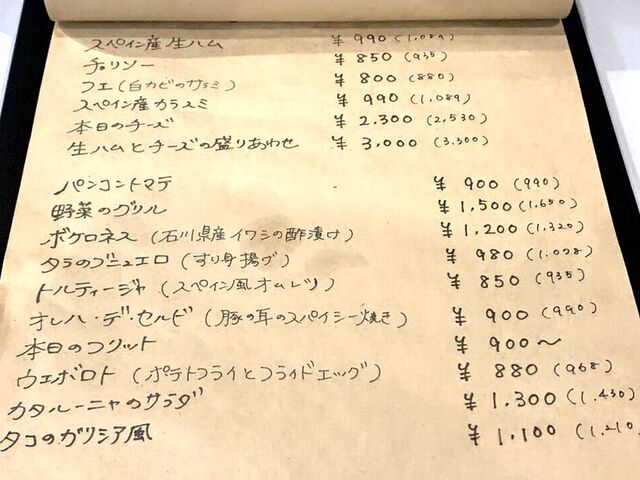 スペイン産生ハム ¥ 990 (1,089)
チョリソー ¥ 850 (935)
フエ (白カビのサラミ) ¥ 800 (880)
スペイン産カラスミ ¥ 990 (1,089)
本日のチーズ ¥ 2,300 (2,530)
生ハムとチーズの盛りあわせ ¥ 3,000 (3,300)
パンコントマテ ¥ 900 (990)
野菜のグリル ¥ 1,500 (1,650)
ボケロネス (石川県産イワシの酢漬け) ¥ 1,200 (1,320)
タラのブニュエロ (すり身揚げ) ¥ 980 (1,078)
トルティージャ (スペイン風オムレツ) ¥ 850 (935)
オレハ・デ・セルド (豚の耳のスパイシー焼き) ¥ 900 (990)
本日のフリット ¥ 900〜
ウエボロト (ポテトフライとフライドエッグ) ¥ 880 (968)
カタルーニャのサラダ ¥ 1,300 (1,430)
タコのガリシア風 ¥ 1,100 (1,210